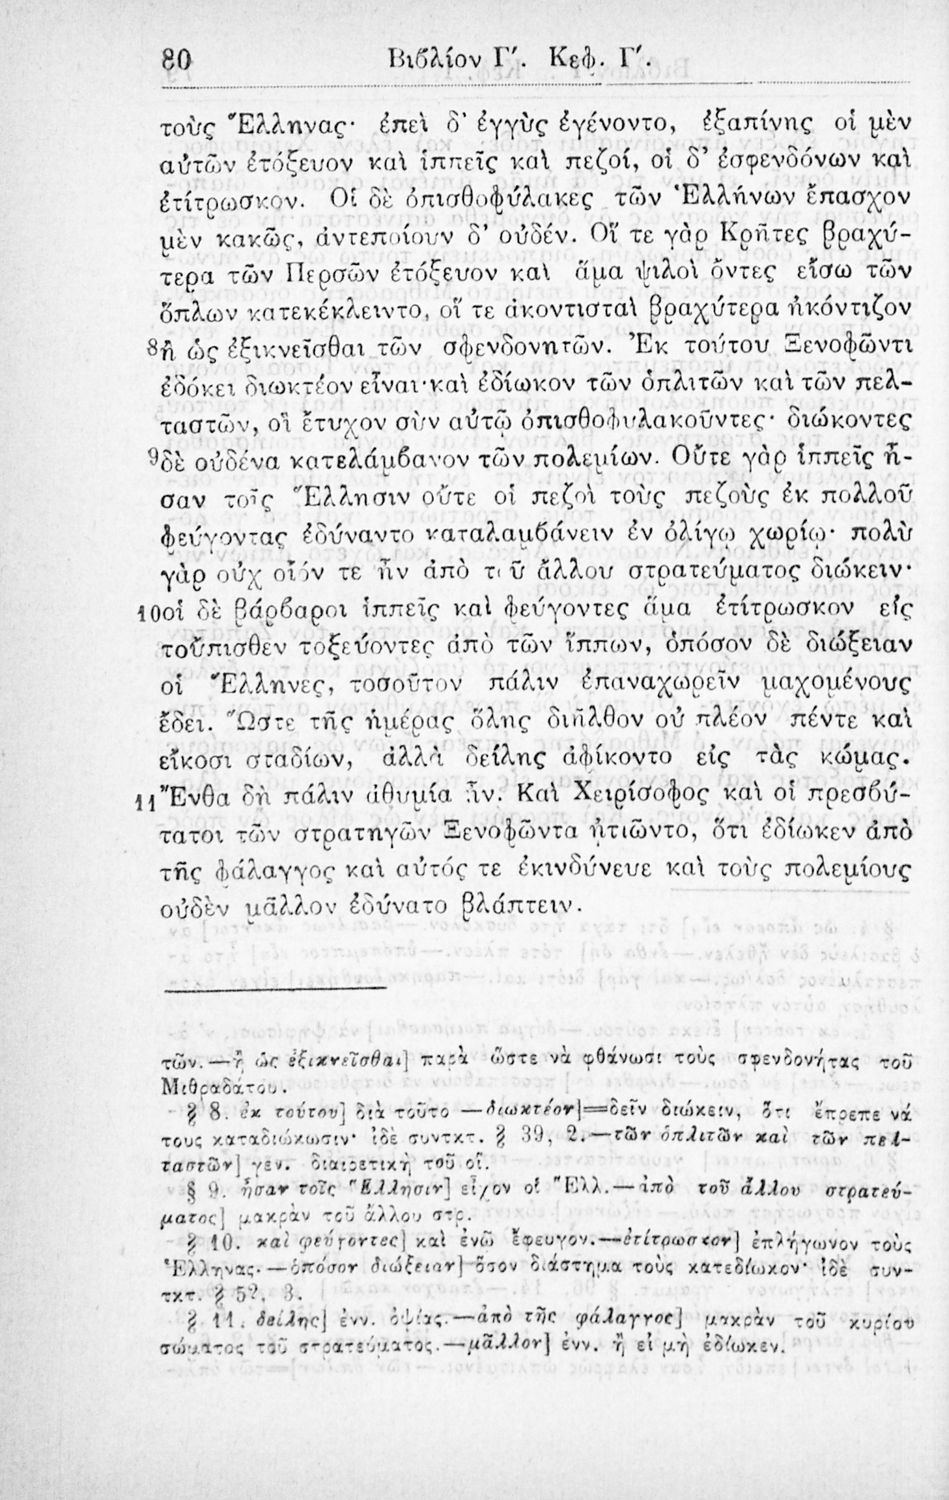 80 Βιβλίον Γ΄. Κεφ. Γ΄.
τοὺς Ἕλληνας· ἐπεὶ δ' ἐγγὺς ἐγένοντο, ἐξαπίνης οἱ μὲν
αὐτῶν ἐτόξευον καὶ ἱππεῖς καὶ πεζοί, οἱ δ' ἐσφενδόνων καὶ
ἐτίτρωσκον. Οἱ δὲ ὀπισθοφύλακες τῶν Ἑλλήνων ἔπασχον
μὲν κακῶς, ἀντεποίουν δ' οὐδέν. Οἵ τε γὰρ Κρῆτες βραχύ-
τερα τῶν Περσῶν ἐτόξευον καὶ ἅμα ψιλοὶ ὄντες εἴσω τῶν
ὅπλων κατεκέκλειντο, οἵ τε ἀκοντισταὶ βραχύτερα ἠκόντιζον
8 ἢ ὡς ἐξικνεῖσθαι τῶν σφενδονητῶν. Ἐκ τούτου Ξενοφῶντι
ἐδόκει διωκτέον εἶναι· καὶ ἐδίωκον τῶν ὁπλιτῶν καὶ τῶν πελ-
ταστῶν, οἳ ἔτυχον σὺν αὐτῷ ὀπισθοφυλακοῦντες· διώκοντες
9 δὲ οὐδένα κατελάμβανον τῶν πολεμίων. Οὔτε γὰρ ἱππεῖς ἦ-
σαν τοῖς Ἕλλησιν οὔτε οἱ πεζοὶ τοὺς πεζοὺς ἐκ πολλοῦ
φεύγοντας ἐδύναντο καταλαμβάνειν ἐν ὀλίγῳ χωρίῳ· πολὺ
γὰρ οὐχ οἷόν τε ἦν ἀπὸ τοῦ ἄλλου στρατεύματος διώκειν·
10 οἱ δὲ βάρβαροι ἱππεῖς καὶ φεύγοντες ἅμα ἐτίτρωσκον εἰς
τοὔπισθεν τοξεύοντες ἀπὸ τῶν ἵππων, ὁπόσον δὲ διώξειαν
οἱ Ἕλληνες, τοσοῦτον πάλιν ἐπαναχωρεῖν μαχομένους
ἔδει. Ὥστε τῆς ἡμέρας ὅλης διῆλθον οὐ πλέον πέντε καὶ
εἴκοσι σταδίων, ἀλλὰ δείλης ἀφίκοντο εἰς τὰς κώμας.
11 Ἔνθα δὴ πάλιν ἀθυμία ἦν. Καὶ Χειρίσοφος καὶ οἱ πρεσβύ-
τατοι τῶν στρατηγῶν Ξενοφῶντα ᾐτιῶντο, ὅτι ἐδίωκεν ἀπὸ
τῆς φάλαγγος καὶ αὐτός τε ἐκινδύνευε καὶ τοὺς πολεμίους
οὐδὲν μᾶλλον ἐδύνατο βλάπτειν.
τῶν.—ἢ ὡς ἐξικνεῖσθαι] παρὰ ὥστε νὰ φθάνωσι τοὺς σφενδονήτας τοῦ
Μιθραδάτου.
§ 8. ἐκ τούτου] διὰ τοῦτο —διωκτέον]=δεῖν διώκειν, ὅτι ἔπρεπε νά
τους καταδιώκωσιν· ἰδὲ συντκτ. § 39, 2.—τῶν ὁπλιτῶν καὶ τῶν πελ-
ταστῶν] γεν. διαιρετικὴ τοῦ οἵ.
§ 9. ἦσαν τοῖς Ἕλλησιν] εἶχον οἱ Ἕλλ.—ἀπὸ τοῦ ἄλλου στρατεύ-
ματος] μακρὰν τοῦ ἄλλου στρ.
§ 10. καὶ φεύγοντες] καὶ ἐνῶ ἔφευγον.—ἐτίτρωσκον] ἐπλήγωνον τοὺς
Ἕλληνας.—ὁπόσον διώξειαν] ὅσον διάστημα τοὺς κατεδίωκον· ἰδὲ συν-
τκτ. § 52, 3.
§ 11. δείλης] ἐνν. ὀψίας.—ἀπὸ τῆς φάλαγγος] μακρὰν τοῦ κυρίου
σώματος τοῦ στρατεύματος.—μᾶλλον] ἐνν. ἢ εἰ μὴ ἐδίωκεν.